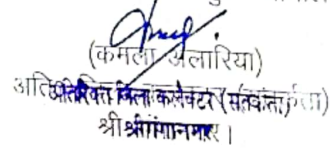 (कमला अलारिया)
अतिरिक्त जिला कलेक्टर (सतर्कता)
श्रीगंगानगर।